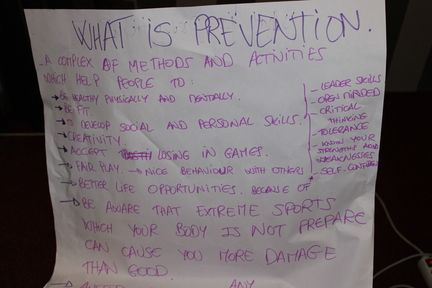 WHAT IS PREVENTION.
- A COMPLEX OF METHODS AND ACTIVITIES
WHICH HELP PEOPLE TO:
→ BE HEALTHY PHYSICALLY AND MENTALLY.
→ BE FIT.
→ TO DEVELOP SOCIAL AND PERSONAL SKILLS.
- LEADER SKILLS
- OPEN MINDED
- CRITICAL
THINKING
- TOLERANCE
- KNOW YOUR
STRENGTHS AND
WEAKNESSES
- SELF-CONFIDENCE
→ CREATIVITY.
→ ACCEPT LOSING IN GAMES.
→ FAIR PLAY. → NICE BEHAVIOUR WITH OTHERS
→ BETTER LIFE OPPORTUNITIES. BECAUSE OF
→ BE AWARE THAT EXTREME SPORTS
WHICH YOUR BODY IS NOT PREPARE
CAN CAUSE YOU MORE DAMAGE
THAN GOOD.
ANY